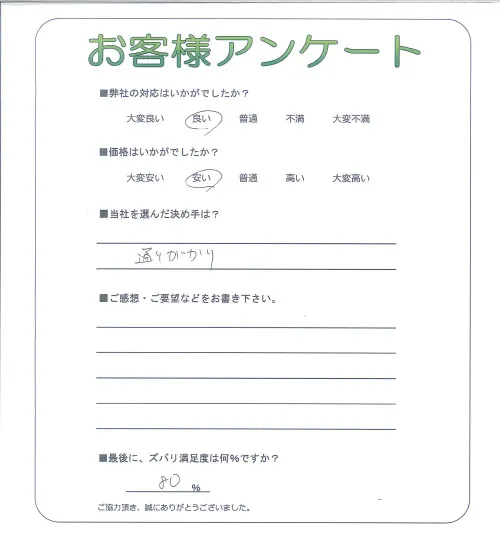 お客様アンケート
■弊社の対応はいかがでしたか？
大変良い 良い 普通 不満 大変不満
■価格はいかがでしたか？
大変安い 安い 普通 高い 大変高い
■当社を選んだ決め手は？
通りがかり
■ご感想・ご要望などをお書き下さい。
■最後に、ズバリ満足度は何%ですか？
80 %
ご協力頂き、誠にありがとうございました。